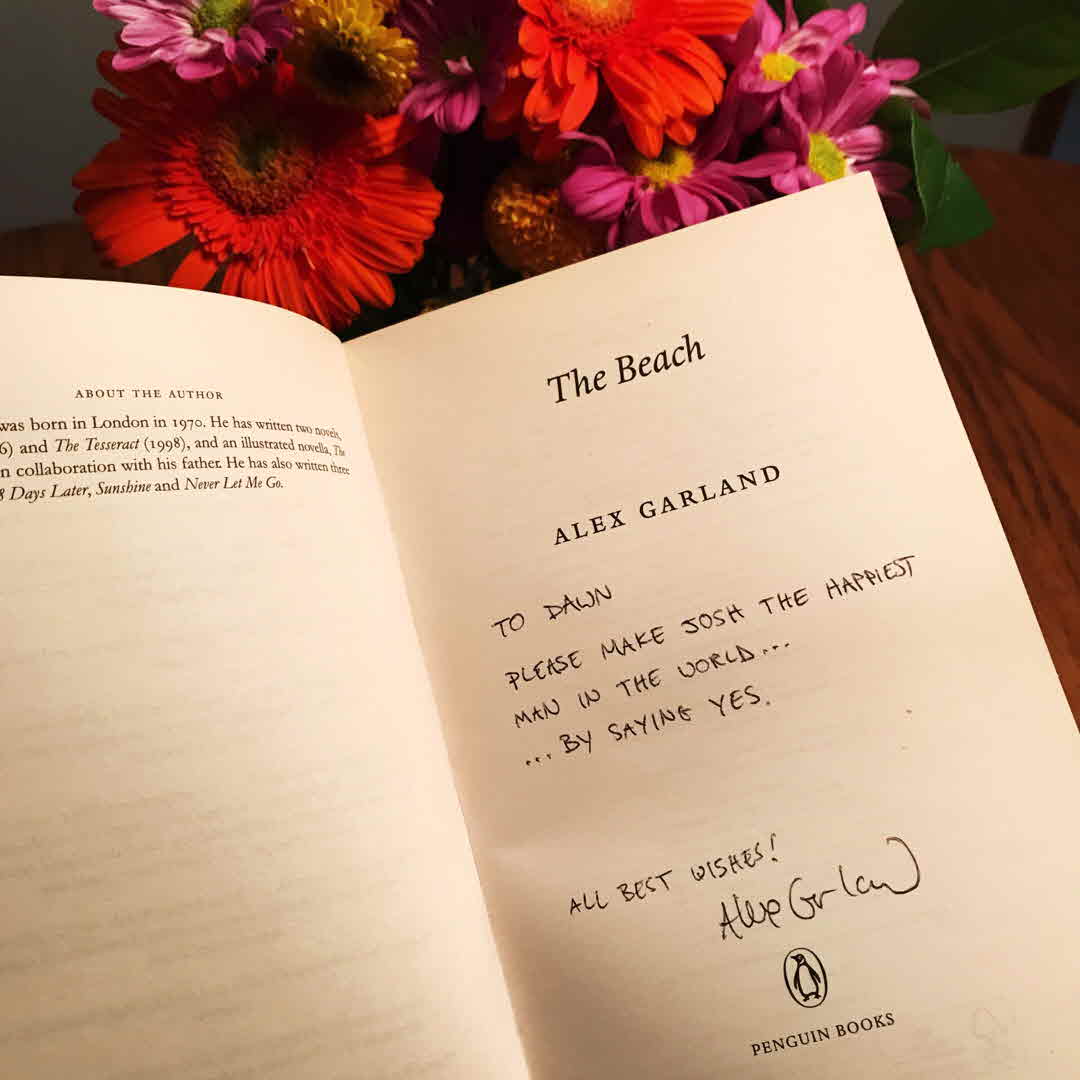 ABOUT THE AUTHOR
was born in London in 1970. He has written two novels,
6) and The Tesseract (1998), and an illustrated novella, The
n collaboration with his father. He has also written three
8 Days Later, Sunshine and Never Let Me Go.
The Beach
ALEX GARLAND
TO DAWN
PLEASE MAKE JOSH THE HAPPIEST
MAN IN THE WORLD...
...BY SAYING YES.
ALL BEST WISHES!
Alex Garland
PENGUIN BOOKS